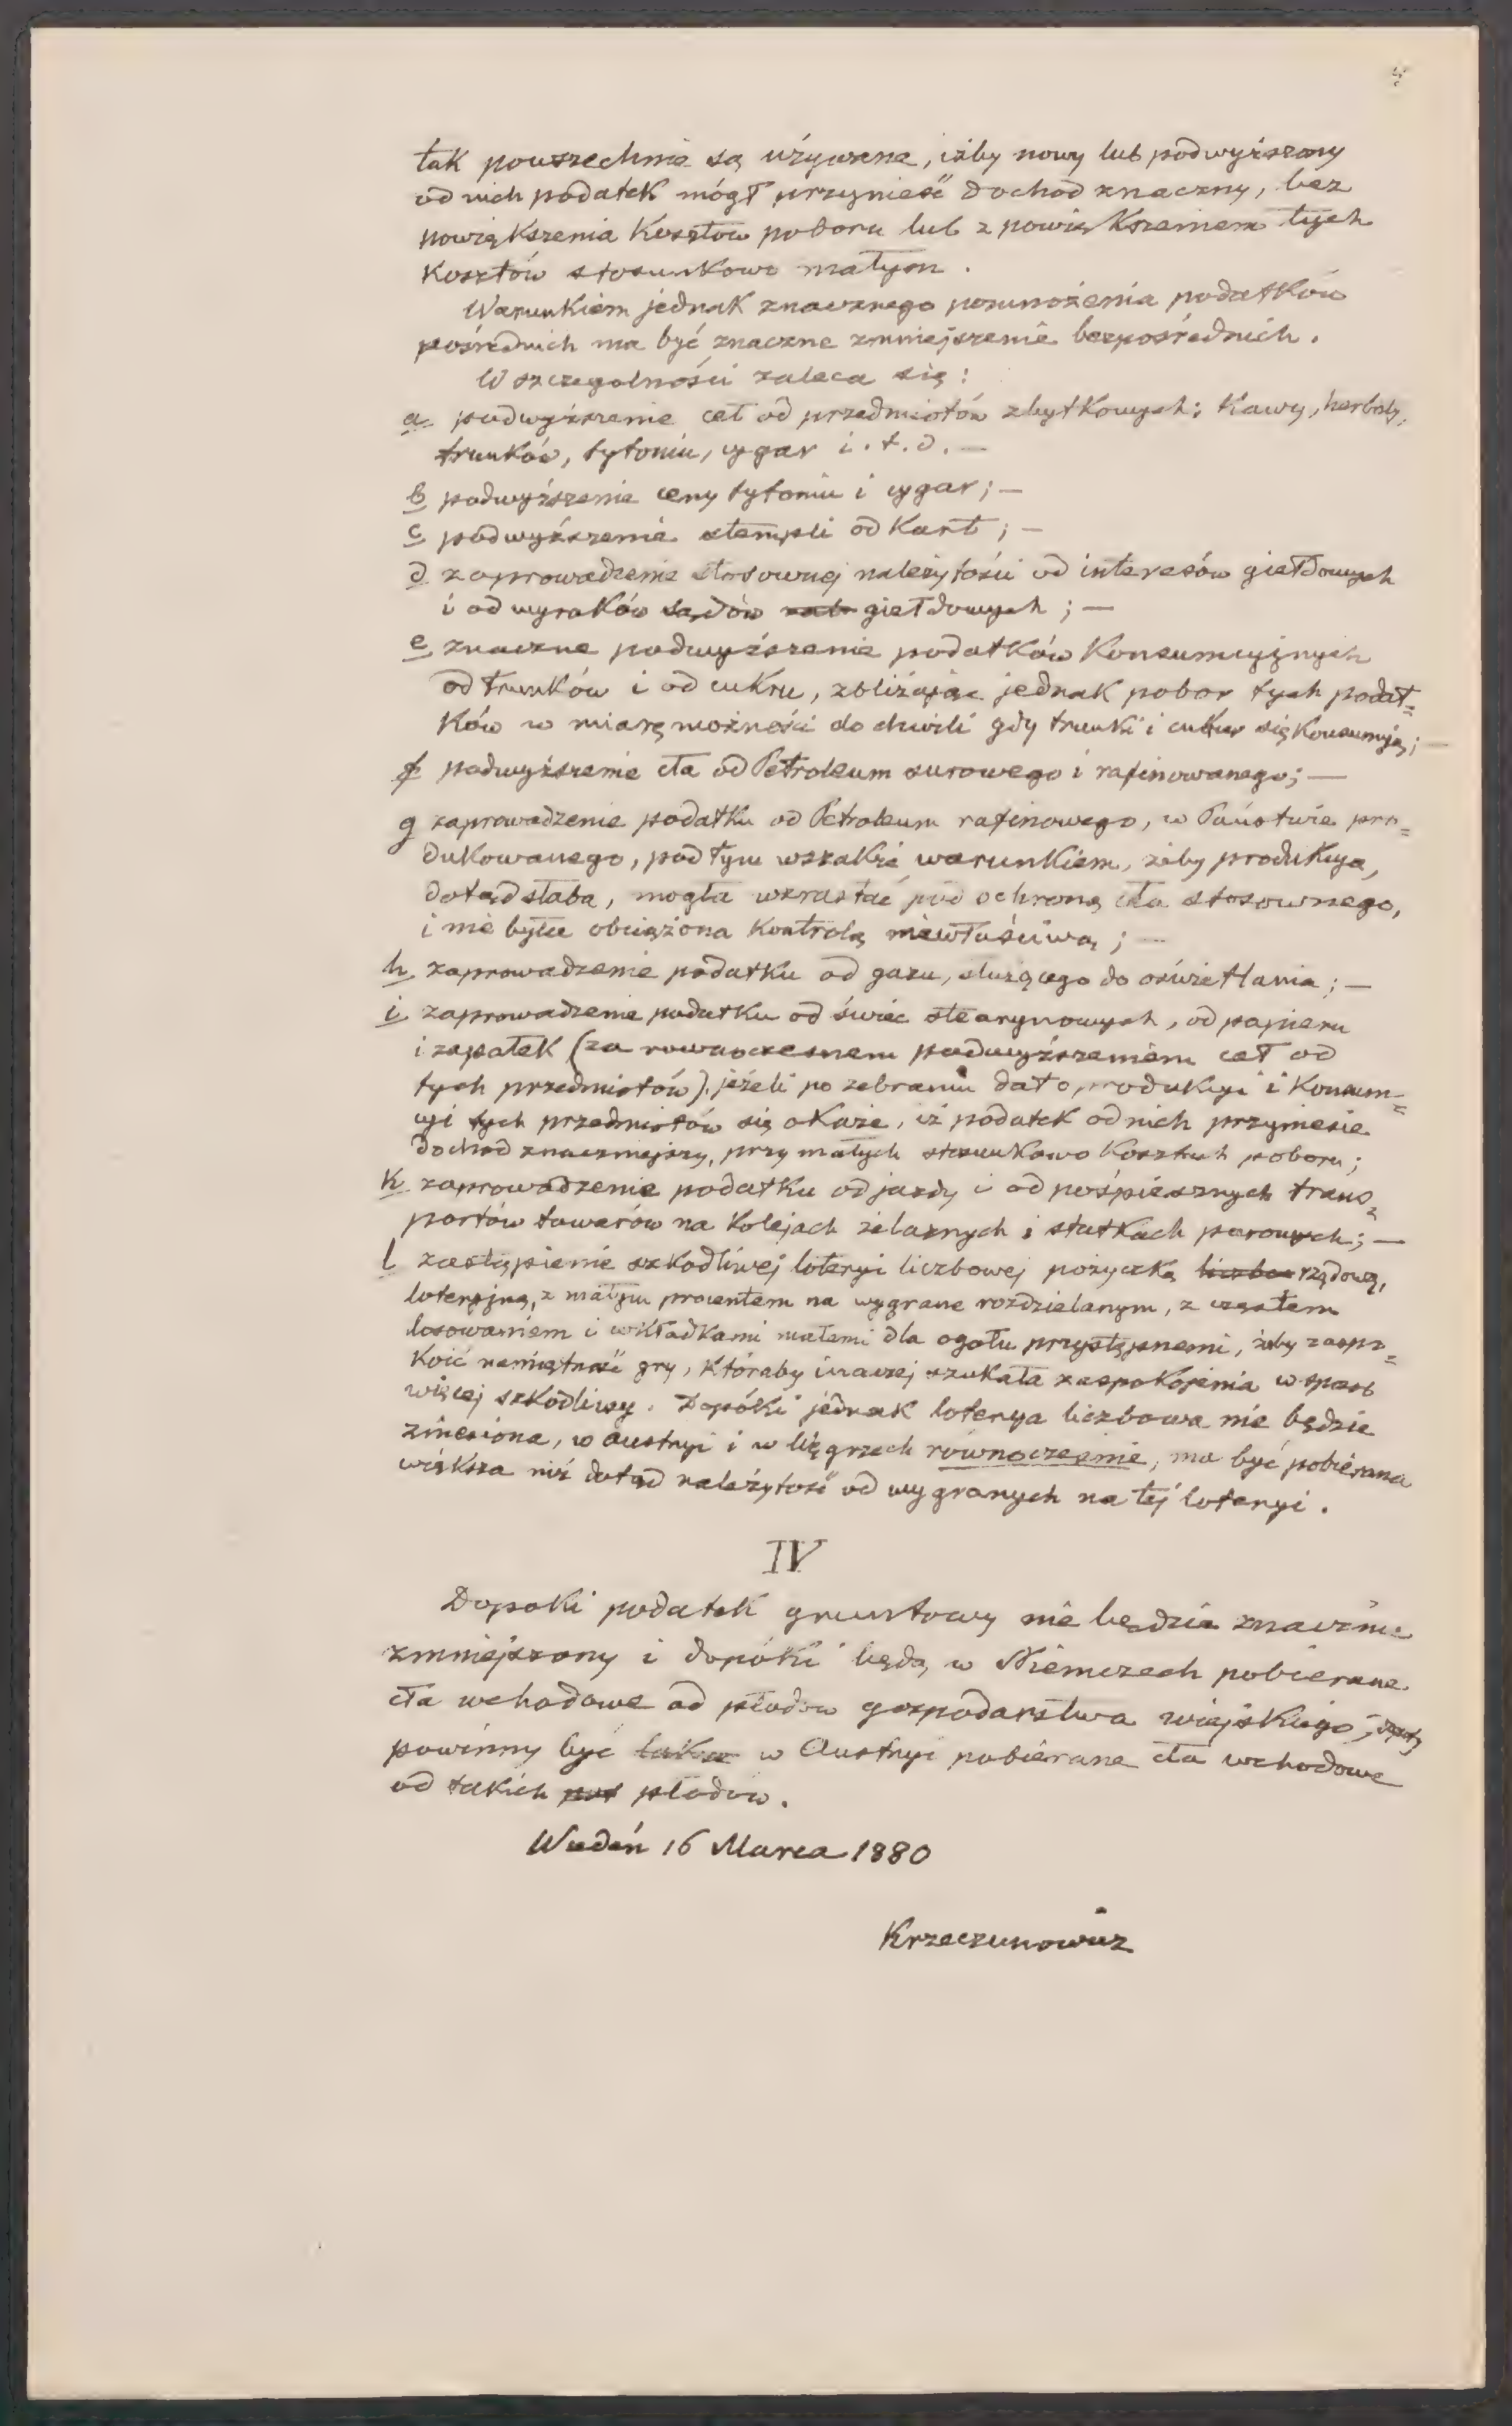 tak powszechnie są używane, iżby nowy lub podwyższony
od nich podatek mógł przynieść dochod znaczny, bez
powiększenia Kosztów poboru lub z powiększeniem tych
Kosztów stosunkowo małym.
Warunkiem jednak znacznego pomnożenia podatków
pośrednich ma być znaczne zmniejszenie bezpośrednich.
W szczegolności zaleca się:
a podwyższenie ceł od przedmiotów zbytkowych: Kawy, herbaty,
trunków, tytoniu, cygar i.t.d. —
b podwyższenie ceny tytoniu i cygar; —
c podwyższenie stempli od Kart; —
d zaprowadzenie stosownej należytości od interesów giełdowych
i od wyroków sądów giełdowych; —
e znaczne podwyższenie podatków Konsumcyjnych
od trunków i od cukru, zbliżając jednak pobor tych podat=
ków w miarę możności do chwili gdy trunki i cukier się Konsumują; —
f podwyższenie cła od Petroleum surowego i rafinowanego; —
g zaprowadzenie podatku od Petroleum rafinowego, w Państwie pro=
dukowanego, pod tym wszakże warunkiem, żeby produkcya,
dotąd słaba, mogła wzrastać pod ochroną cła stosownego,
i nie była obciążona Kontrolą niewłaściwą; —
h zaprowadzenie podatku od gazu, służącego do oświetlania; —
i zaprowadzenie podatku od świec stearynowych, od papieru
i zapałek (za rownoczesnem podwyższeniem ceł od
tych przedmiotów), jeżeli po zebraniu dat o produkcyi i Konsum=
cyi tych przedmiotów się okaże, iż podatek od nich przyniesie
dochod znaczniejszy, przy małych stosunkowo Kosztach poboru;
k zaprowadzenie podatku od jazdy i od pośpiesznych trans=
portów towarów na Kolejach żelaznych i statkach parowych; —
l zastąpienie szkodliwej loteryi liczbowej pożyczką rządową,
loteryjną, z małym procentem na wygrane rozdzielanym, z częstem
losowaniem i wkładkami małemi dla ogołu przystępnemi, żeby zaspo=
koić namiętność gry, któraby inaczej szukała zaspokojenia w sposob
więcej szkodliwy. Dopóki jednak loterya liczbowa nie będzie
zniesiona, w Austryi i w Węgrzech rownocześnie, ma być pobierana
większa niż dotąd należytość od wygranych na tej loteryi.
IV
Dopoki podatek gruntowy nie będzie znacznie
zmniejszony i dopóki będą w Niemczech pobierane
cła wchodowe od płodow gospodarstwa wiejskiego,
powinny być w Austryi pobierane cła wchodowe
od takich płodow.
Wiedeń 16 Marca 1880
Krzeczunowicz